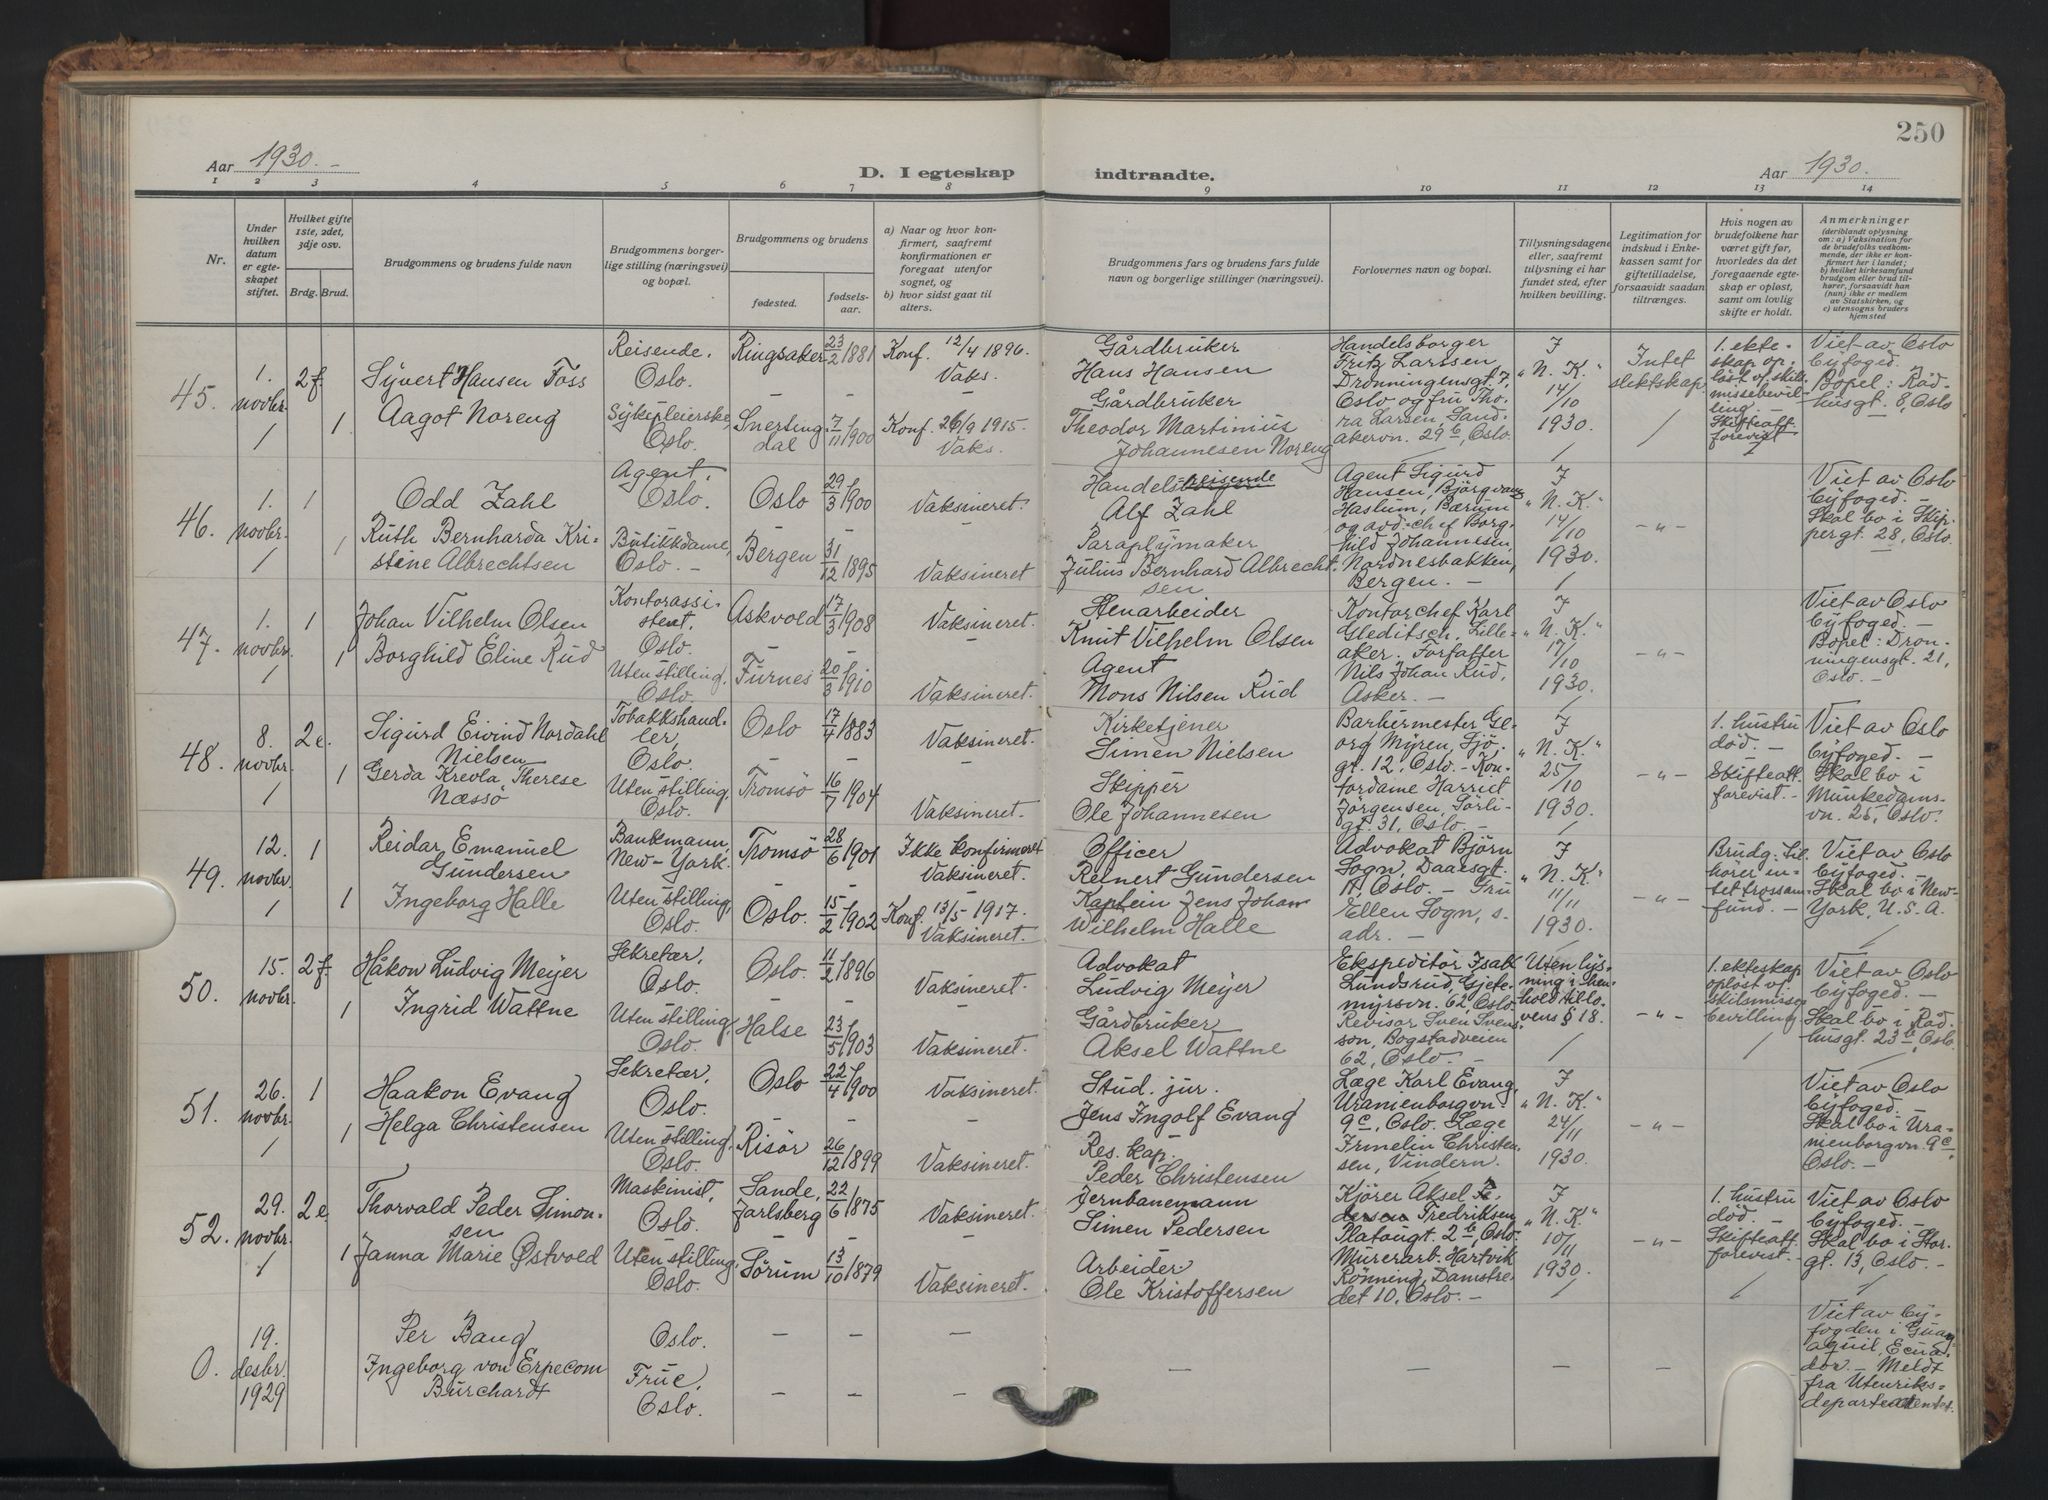 250
Aar 1930.-
D. I egteskap indtraadte.
Aar 1930.
1 2 3 4 5 6 7 8 9 10 11 12 13 14
Nr.
Under
hvilken
datum
er egte-
skapet
stiftet.
Hvilket gifte
1ste, 2det,
3dje osv.
Brdg.
Brud.
Brudgommens og brudens fulde navn
Brudgommens borger-
lige stilling (næringsvei)
og bopæl.
Brudgommens og brudens
fødested.
fødsels-
aar.
a) Naar og hvor kon-
firmert, saafremt
konfirmationen er
foregaat utenfor
sognet, og
b) hvor sidst gaat til
alters.
Brudgommens fars og brudens fars fulde
navn og borgerlige stillinger (næringsvei).
Forlovernes navn og bopæl.
Tillysningsdagene
eller, saafremt
tillysning ei har
fundet sted, efter
hvilken bevilling.
Legitimation for
indskud i Enke-
kassen samt for
giftetilladelse,
forsaavidt saadan
tiltrænges.
Hvis nogen av
brudefolkene har
været gift før,
hvorledes da det
foregaaende egte-
skap er opløst,
samt om lovlig
skifte er holdt.
Anmerkninger
(deriblandt oplysning
om: a) Vaksination for
de brudefolks vedkom-
mende, der ikke er kon-
firmert her i landet;
b) hvilket kirkesamfund
brudgom eller brud til-
hører, forsaavidt han
(hun) ikke er medlem
av Statskirken, og
c) utensogns bruders
hjemsted
45.
1.
novbr.
2 f.
1
Syvert Hansen Foss
Aagot Noreng
Reisende.
Oslo.
Sykepleierske,
Oslo.
Ringsaker
Snerting-
dal
23/2 1881
7/11 1900
Konf. 12/4 1896.
Vaks.
Konf. 26/9 1915.
Vaks.
Gårdbruker
Hans Hansen
Gårdbruker
Theodor Martinius
Johannesen Noreng
Handelsborger
Fritz Larssen
Dronningensgt. 7,
Oslo og fru Tho-
ra Larsen, Sand-
akervn. 29 b, Oslo.
I
"N. K."
14/10
1930.
Intet
slektskap
1. ekte-
skap op-
løst v. skils-
missebevil-
ling.
Skifteatt.
forevist
Viet av Oslo
byfoged.
Bopel: Råd-
husgt. 8, Oslo
46.
1.
novbr.
1
1
Odd Zahl
Ruth Bernharda Kri-
stine Albrechtsen
Agent,
Oslo.
Butikkdame,
Oslo. -
Oslo
Bergen
29/3 1900
31/12 1895
Vaksineret.
Vaksineret
Handelsreisende
Alf Zahl
Paraplymaker
Julius Bernhard Albrecht-
sen
Agent Sigurd
Hansen, Bjørgvang
Haslum, Bærum
og avd.chef Borg-
hild Johannesen,
Nordnesbakken,
Bergen. -
I
"N. K."
14/10
1930.
- " -
Viet av Oslo
byfoged. -
Skal bo i Skip-
pergt. 28, Oslo.
47.
1.
novbr.
1
1
Johan Vilhelm Olsen
Borghild Eline Rud
Kontorassi-
stent,
Oslo.
Uten stilling,
Oslo.
Askvold
Furnes
17/3 1908
20/3 1910
Vaksineret.
Vaksineret.
Stenarbeider
Knut Vilhelm Olsen
Agent
Mons Nilsen Rud
Kontorchef Karl
Gleditsch, Lille-
aker. Forfatter
Nils Johan Rud,
Asker. -
I
"N. K."
17/10
1930.
- " -
Viet av Oslo
byfoged. -
Bopel: Dron-
ningensgt. 21,
Oslo. -
48.
8.
novbr.
2 e.
1
Sigurd Eivind Nordahl
Nielsen
Gerda Krevla Therese
Næssø
Tobakkshand-
ler,
Oslo.
Uten stilling,
Oslo.
Oslo
Tromsø
17/4 1883
16/7 1904
Vaksineret.
Vaksineret.
Kirketjener
Simen Nielsen
Skipper
Ole Johannesen
Barbermester Ge-
org Myren, Sjø-
gt. 12, Oslo. - Kon-
tordame Harriet
Jørgensen, Sørli-
gt. 31, Oslo -
I
"N. K."
25/10
1930.
- " -
1. hustru
død. -
Skifteatt.
forevist. -
Viet av Oslo
byfoged. -
Skal bo i
Munkedams-
vn. 25, Oslo.
49.
12.
novbr.
1
1
Reidar Emanuel
Gundersen
Ingeborg Halle
Bankmann,
New-York.
Uten stilling,
Oslo.
Tromsø
Oslo.
28/6 1901
15/2 1902
Ikke konfirmeret
Vaksineret.
Konf. 13/5 1917.
Vaksineret.
Officer
Reinert Gundersen
Kaptein Jens Johan
Wilhelm Halle
Advokat Bjørn
Sogn, Daaesgt.
11, Oslo. - Fru
Ellen Sogn, s.
adr. -
I
"N. K."
11/11
1930.
- " -
Brudg: til-
hører in-
tet trossam-
fund. -
Viet av Oslo
byfoged. -
Skal bo i New-
York, U. S. A.
50.
15.
novbr.
2 f.
1
Håkon Ludvig Meyer
Ingrid Wattne
Sekretær,
Oslo.
Uten stilling,
Oslo.
Oslo.
Halse
11/2 1896
23/5 1903
Vaksineret.
Vaksineret.
Advokat
Ludvig Meyer
Gårdbruker
Aksel Wattne
Ekspeditør Isak
Lundsrud, Gjete-
myrsvn. 62, Oslo
Revisor Sven Svens-
son, Bogstadveien
62, Oslo. -
Uten lys-
ning i hen-
hold til lo-
vens § 18.
- " -
1. ekteskap
opløst v.
skilsmisse
bevilling
Viet av Oslo
byfoged. -
Skal bo i Råd-
husgt. 23 b, Oslo.
51.
26.
novbr.
1
1
Haakon Evang
Helga Christensen
Sekretær,
Oslo.
Uten stilling,
Oslo.
Oslo
Risør
22/4 1900
26/12 1899
Vaksineret.
Vaksineret.
Stud. jur.
Jens Ingolf Evang
Res. kap.
Peder Christensen
Læge Karl Evang,
Uranienborgvn.
9 c, Oslo. Læge
Irmelin Christen-
sen, Vindern.
I
"N. K."
24/11
1930.
- " -
Viet av Oslo
byfoged. -
Skal bo i Ura-
nienborgvn. 9 c,
Oslo. -
52.
29.
novbr.
2 e.
1
Thorvald Peder Simon-
sen
Janna Marie Østvold
Maskinist,
Oslo.
Uten stilling,
Oslo.
Sande,
Jarlsberg
Sørum
22/6 1875
13/10 1879
Vaksineret.
Vaksineret.
Jernbanemann
Simen Pedersen
Arbeider
Ole Kristoffersen
Kjører Aksel Pe-
dersen Fredriksen,
Platougt. 2 b, Oslo.
Murerarb. Hartvik
Rønning, Damstre-
det 10, Oslo. -
I
"N. K."
10/11
1930.
- " -
1. hustru
død. -
Skifteatt.
forevist. -
Viet av Oslo
byfoged. -
Skal bo i Stor-
gt. 13, Oslo. -
0.
19.
desbr.
1929
Per Bang
Ingeborg von Erpecom
Burchardt
Oslo.
Frue,
Oslo.
Viet av by-
fogden i Guay-
aquil, Ecua-
dor. - Meldt
fra Utenriks-
departementet.